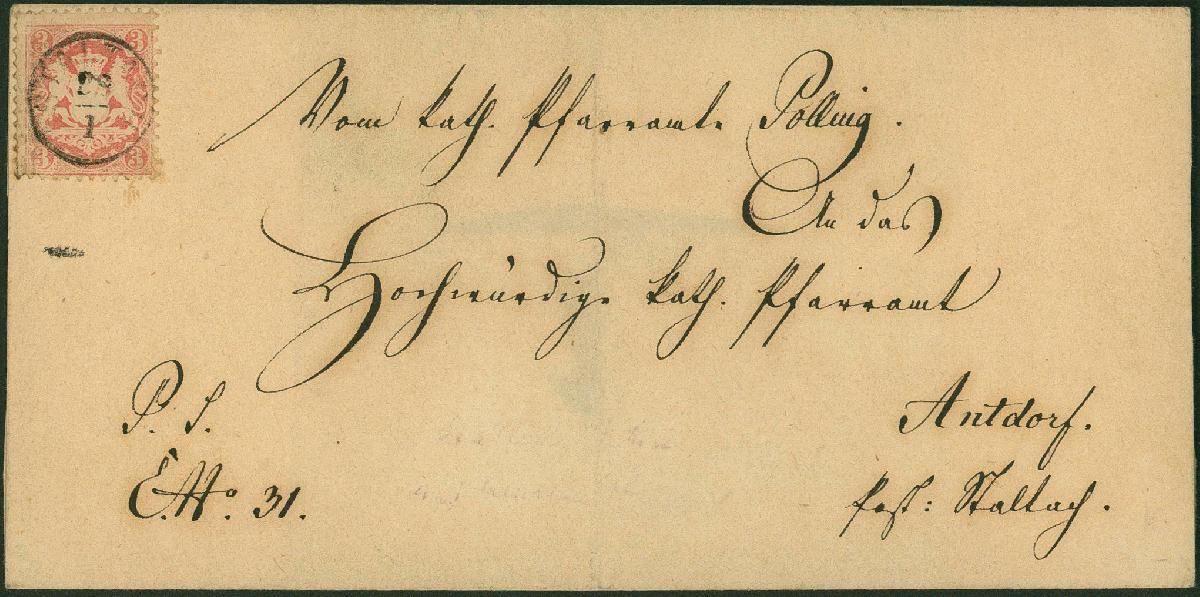 3 3
28
1
3 3
Vom kath. Pfarramte Polling.
An das
Hochwürdige kath. Pfarramt
P. S.
E. No. 31.
Antdorf.
Post: Staltach.